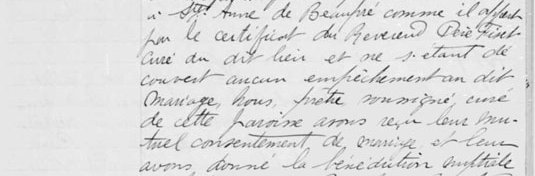 à Ste Anne de Beaupré comme il appert
par le certificat du Reverend Père Fiset
Curé du dit lieu et ne s'étant dé
couvert aucun empêchement au dit
mariage, Nous, prêtre soussigné, curé
de cette paroisse avons reçu leur mu-
tuel consentement de mariage, et leur
avons, donné la bénédiction nuptiale